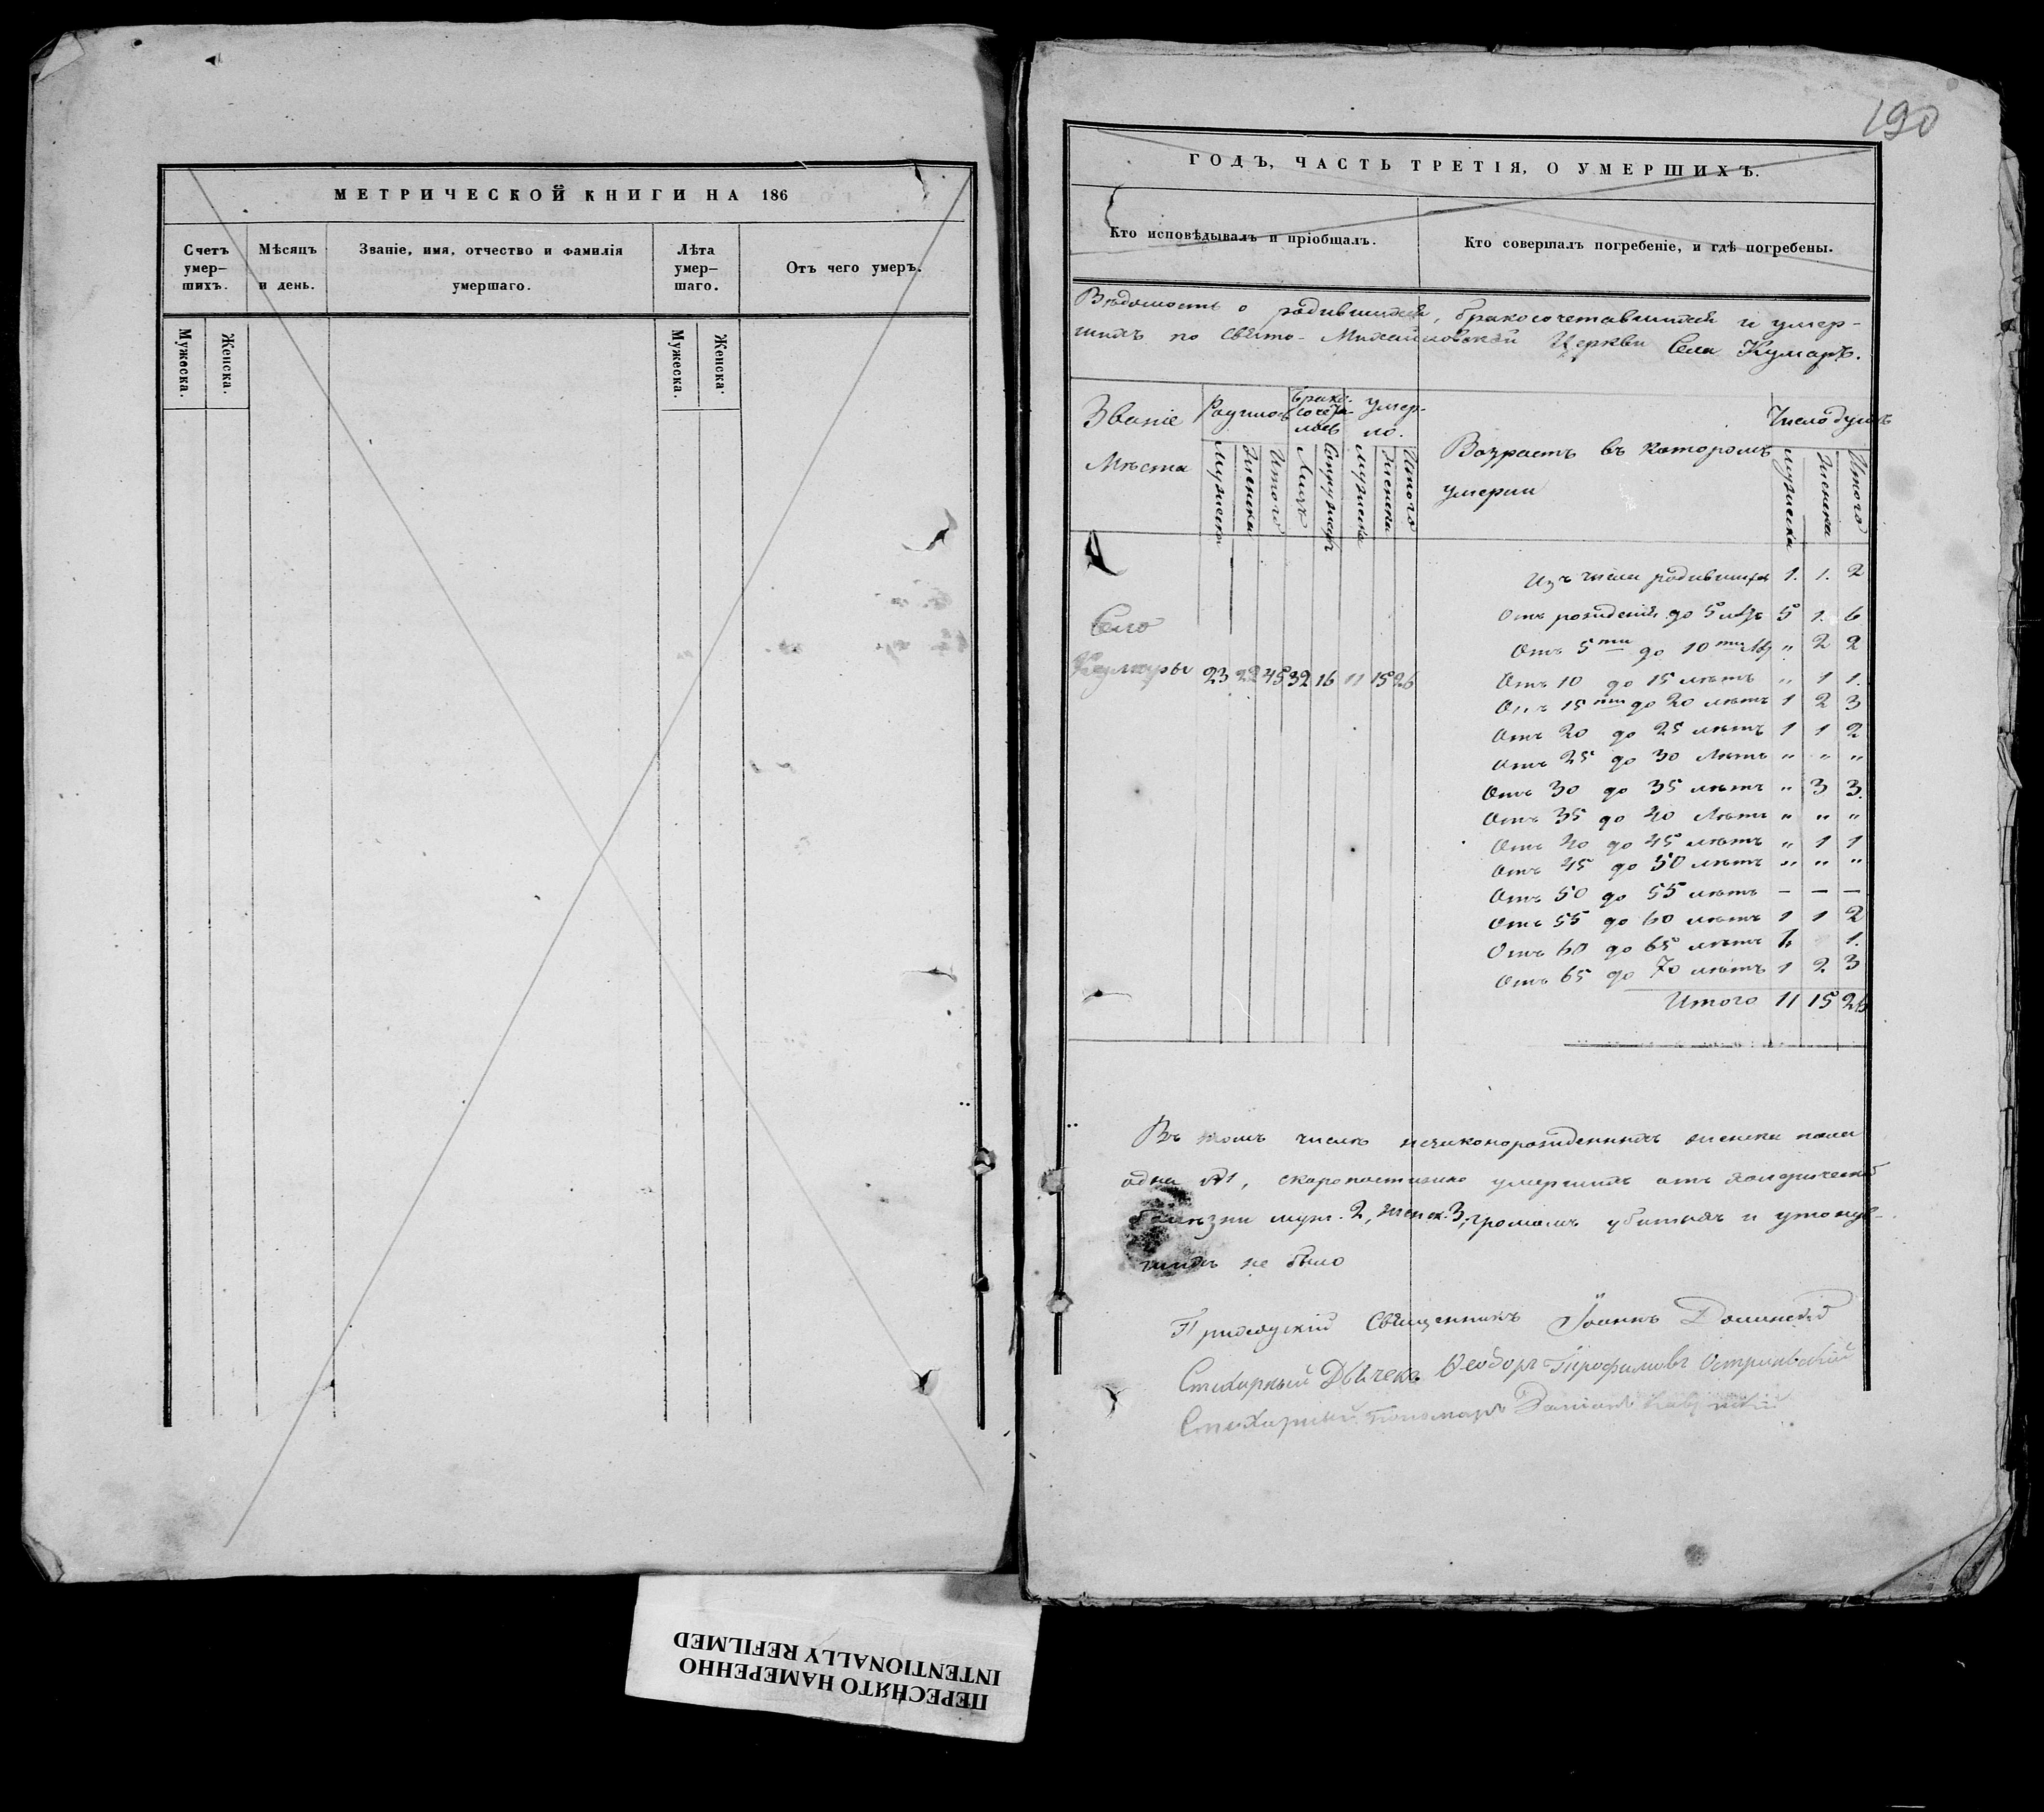 МЕТРИЧЕСКОЙ КНИГИ НА 186
Счетъ умер-шихъ.
Мужеска.
Женска.
Мѣсяцъ и день.
Званіе, имя, отчество и фамилія умершаго.
Лѣта умер-шаго.
Мужеска.
Женска.
Отъ чего умеръ.
190
ГОДЪ, ЧАСТЬ ТРЕТІЯ, О УМЕРШИХЪ.
Кто исповѣдывалъ и пріобщалъ.
Кто совершалъ погребеніе, и гдѣ погребены.
Вѣдомость о родившихся, бракосочетавшихся и умер-
шихъ по Свято-Михайловской Церкви Села Кумаръ.
Званіе Мѣста
Родилось
Мужеска
Женска
Итого
Брако-сочета-лось
Лицъ
Супружествъ
Умер-ло.
Мужеска
Женска
Итого
Возрастъ въ которомъ умерли
Число душъ
Мужеска
Женска
Итого
Село
Кумары 23 22 45 32 16 11 15 26
Изъ числа родившихся 1. 1. 2
Отъ рожденія до 5 лѣтъ 5 1. 6
Отъ 5ти до 10ти лѣтъ " 2 2
Отъ 10 до 15 лѣтъ " 1 1.
Отъ 15ти до 20 лѣтъ 1 2 3
Отъ 20 до 25 лѣтъ 1 1 2
Отъ 25 до 30 лѣтъ " " "
Отъ 30 до 35 лѣтъ " 3 3.
Отъ 35 до 40 лѣтъ " " "
Отъ 40 до 45 лѣтъ " 1 1
Отъ 45 до 50 лѣтъ " " "
Отъ 50 до 55 лѣтъ – – –
Отъ 55 до 60 лѣтъ 1 1 2
Отъ 60 до 65 лѣтъ 1. 1.
Отъ 65 до 70 лѣтъ 1 2 3
Итого 11 15 26
Въ томъ числѣ незаконорожденныхъ женска пола
одна №1, скоропостижно умершихъ отъ холерической
болѣзни муж. 2, женск. 3, громомъ убитыхъ и утонув-
шихъ не было
Приходскій Священникъ Іоаннъ
Стихарный Дьячекъ Ѳеодоръ Трофимовъ
Стихарный Пономарь
ПЕРЕСНЯТО НАМЕРЕННО
INTENTIONALLY REFILMED